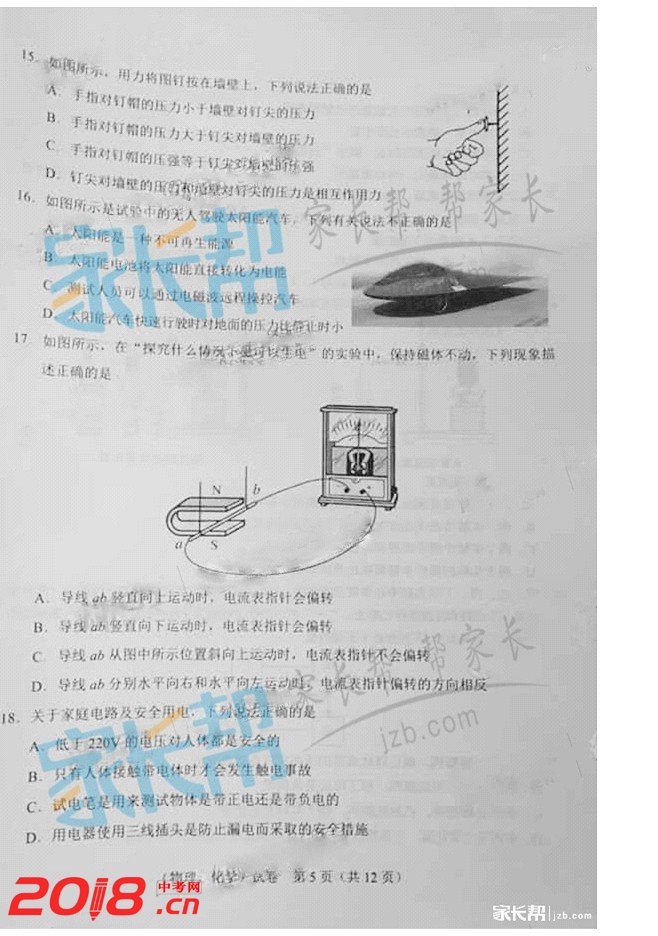 15. 如图所示，用力将图钉按在墙壁上，下列说法正确的是
A. 手指对钉帽的压力小于墙壁对钉尖的压力
B. 手指对钉帽的压力大于钉尖对墙壁的压力
C. 手指对钉帽的压强等于钉尖对墙壁的压强
D. 钉尖对墙壁的压力和墙壁对钉尖的压力是相互作用力
16. 如图所示是试验中的无人驾驶太阳能汽车，下列有关说法不正确的是
A. 太阳能是一种不可再生能源
B. 太阳能电池将太阳能直接转化为电能
C. 测试人员可以通过电磁波远程操控汽车
D. 太阳能汽车快速行驶时对地面的压力比静止时小
17. 如图所示，在“探究什么情况下磁可以生电”的实验中，保持磁体不动，下列现象描
述正确的是
N
b
a
S
A. 导线 ab 竖直向上运动时，电流表指针会偏转
B. 导线 ab 竖直向下运动时，电流表指针会偏转
C. 导线 ab 从图中所示位置斜向上运动时，电流表指针不会偏转
D. 导线 ab 分别水平向右和水平向左运动时，电流表指针偏转的方向相反
18. 关于家庭电路及安全用电，下列说法正确的是
A. 低于 220V 的电压对人体都是安全的
B. 只有人体接触带电体时才会发生触电事故
C. 试电笔是用来测试物体是带正电还是带负电的
D. 用电器使用三线插头是防止漏电而采取的安全措施
（物理、化学）试卷 第 5 页（共 12 页）
家长帮
帮家长
jzb.com
家长帮
帮家长
jzb.com
2018.cn
中考网
家长帮 jzb.com